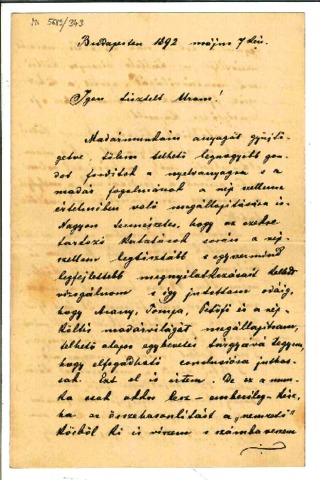 M. 5683/343
Budapesten 1892 május 7-én.
Igen tisztelt Uram!
Madármunkám anyagát gyűjtö-
getve, tőlem telhető legnagyobb gon-
dot fordítok a nyelvanyagra s a
madár fogalmának a nép szelleme
értelmében való megállapítására is.
Nagyon természetes, hogy az ezekre
tartozó kutatások során a nép-
szellem legtisztább s egyszersmind
legfejlettebb megnyilatkozásait kellett
vizsgálnom s így jutottam odáig,
hogy Arany, Tompa, Petőfi és a nép-
költés madárvilágát megállapítsam,
telhető alapos egybevetés tárgyává tegyem,
hogy elfogadható conclusióra juthas-
sak. Ezt el is értem. De ez a mun-
ka csak akkor lesz - emberileg - kész,
ha az összehasonlítást a „nemzeti"
körből ki is viszem s számba veszem